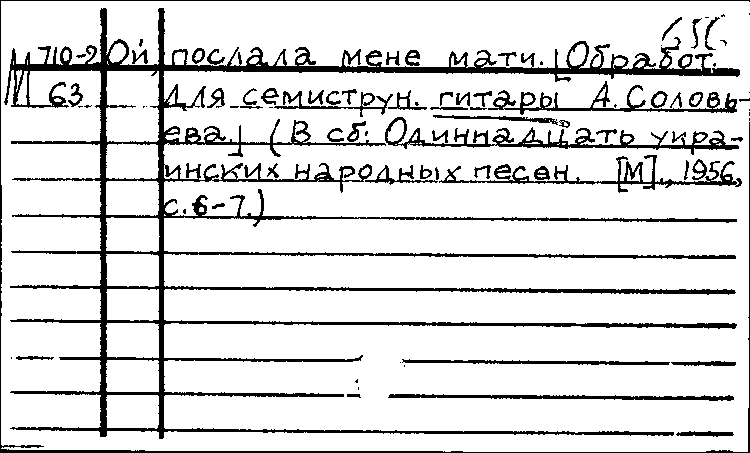 М 710-9 Ой, послала мене мати. [Обработ.
63 для семиструн. гитары А. Соловь-
ева.] (В сб: Одиннадцать укра-
инских народных песен. [М]., 1956,
с.6-7.)